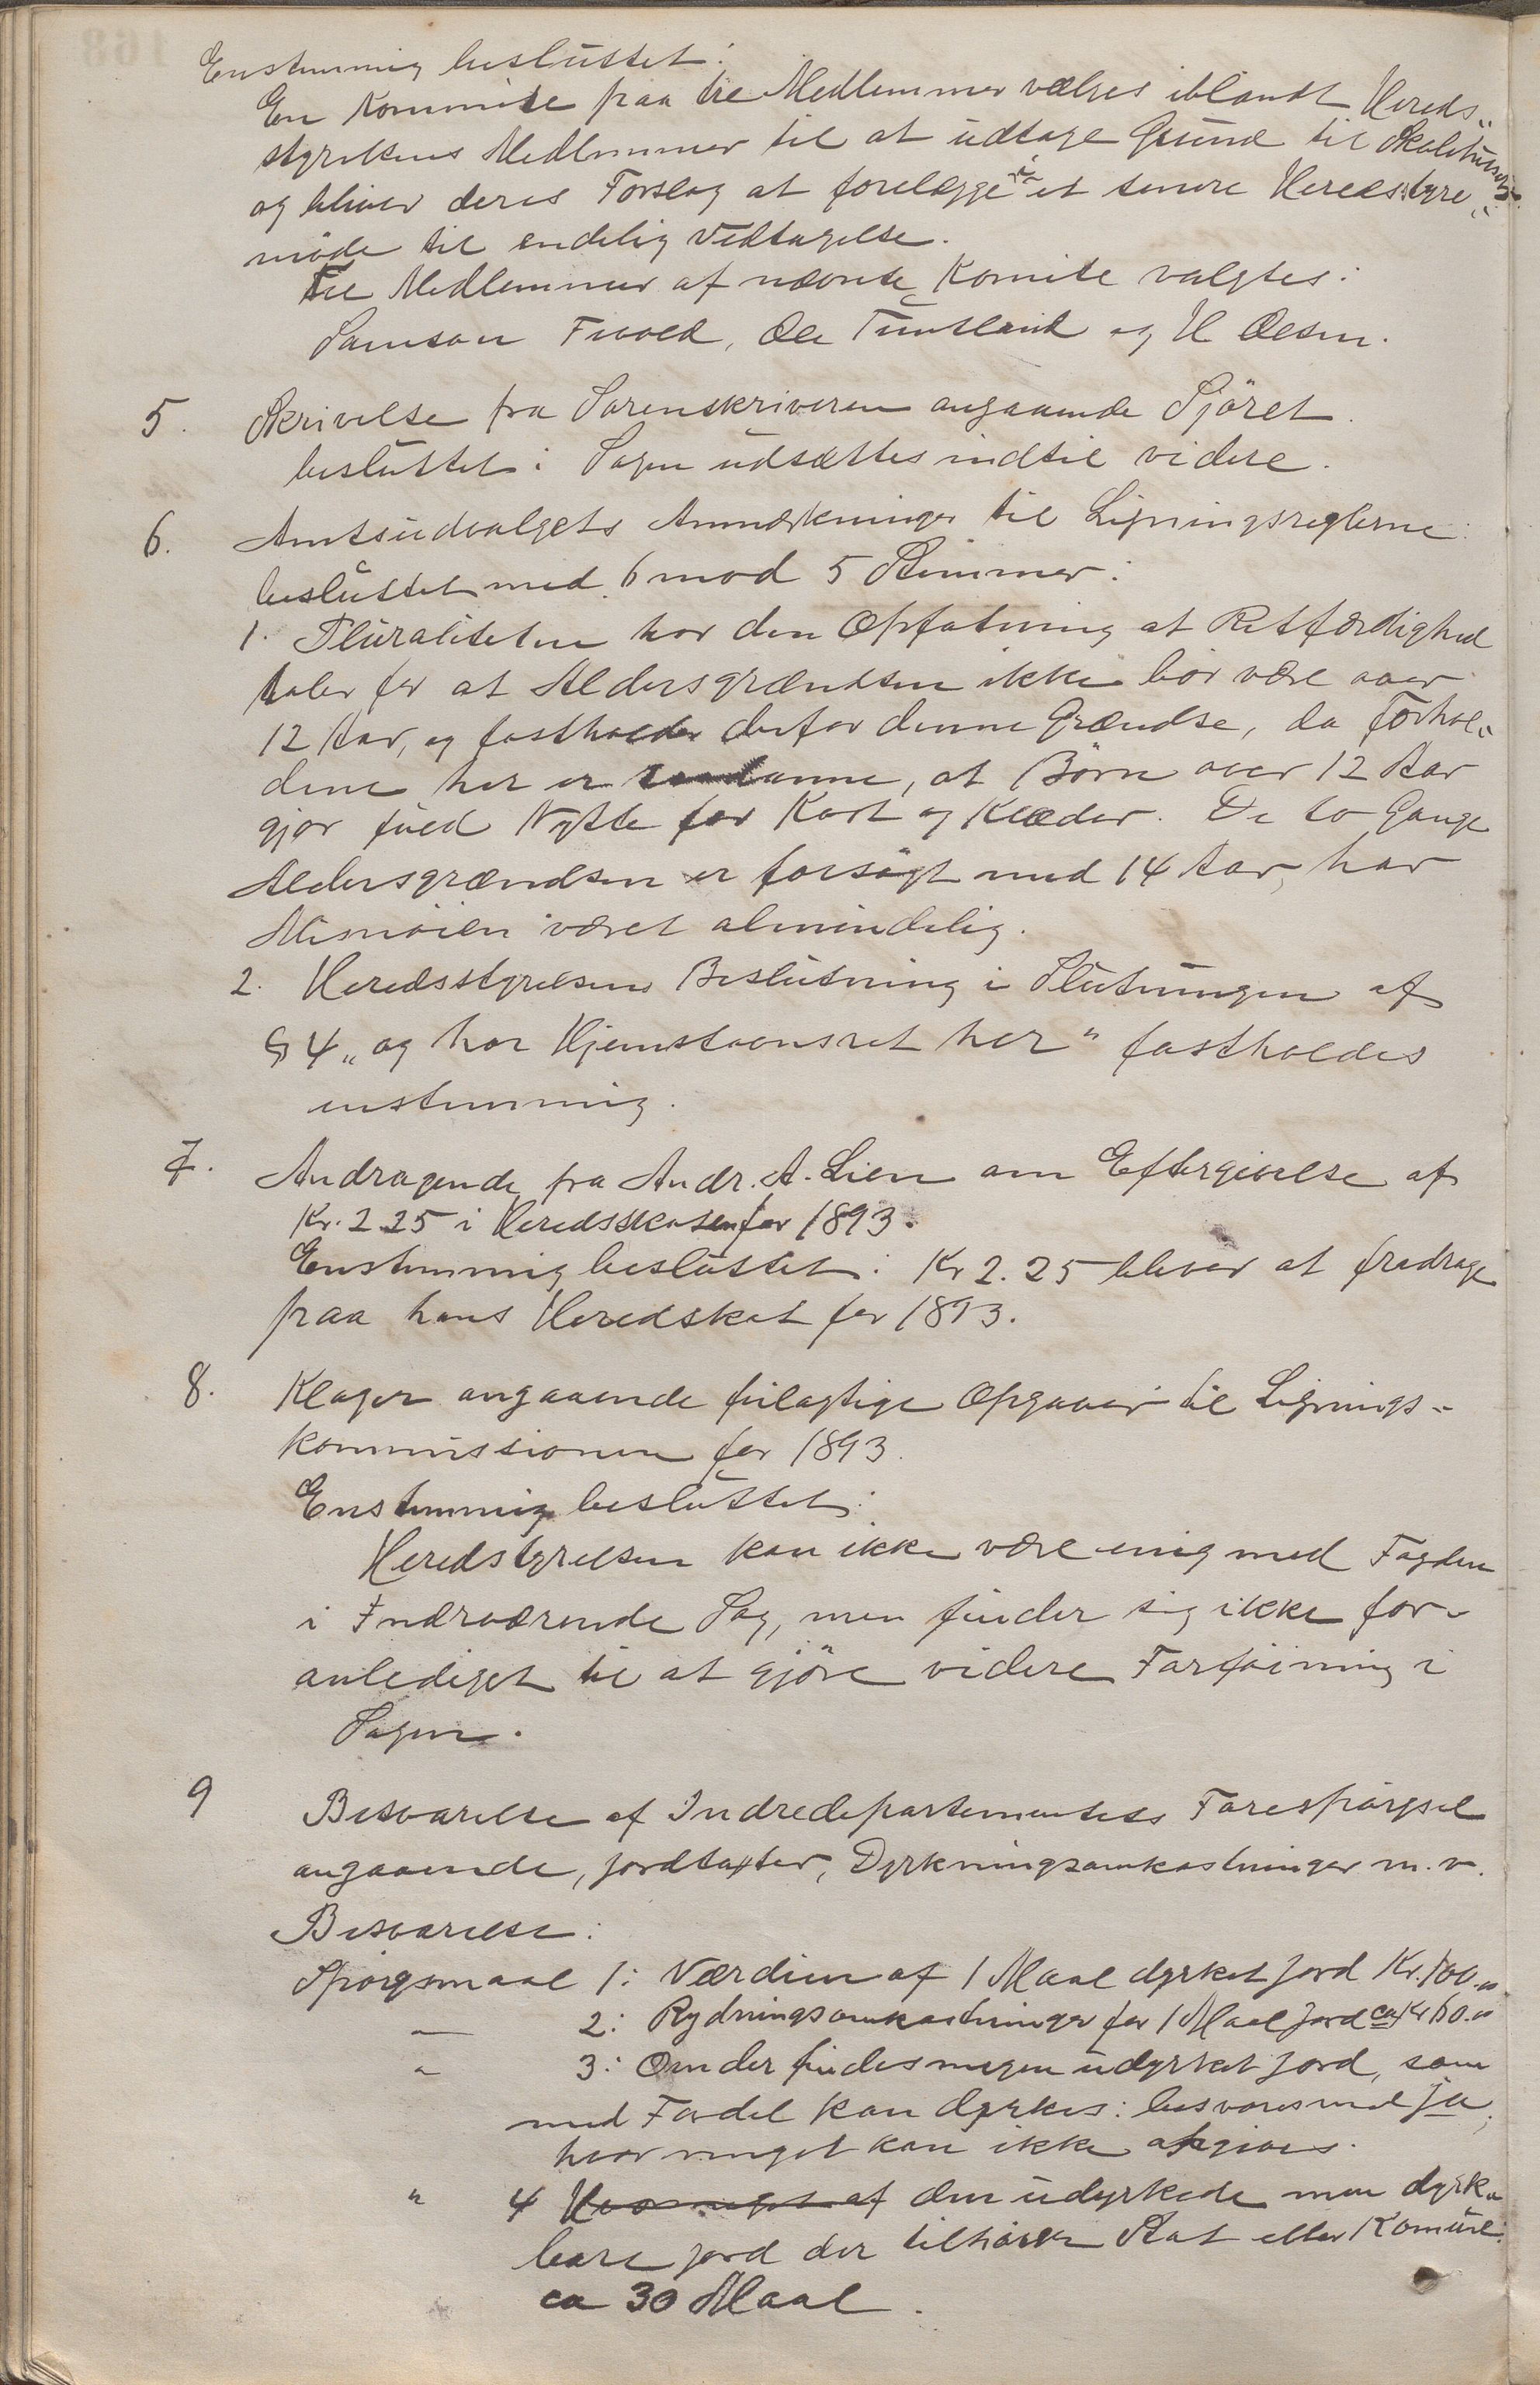 Enstemmig besluttet:
En Kommite paa tre Medlemmer vælges iblandt Hereds„
styrelsens Medlemmer til at udtage Grund til Skolehuset
og bliver deres Forslag at forelægge i et senere Heredsstyre„
møde til endelig Vedtagelse.
Til Medlemmer af nævnte Komite valgtes:
Samson Fivold, Ole Tuntland og H Olsen.
5. Skrivelse fra Sorenskriveren angaaende Sjöret.
besluttet: Sagen udsættes indtil videre.
6. Amtsudvalgets Anmærkninger til Ligningsreglerne:
besluttet med 6 mod 5 Stemmer:
1. Pluraliteten har den Opfatning at Retfærdighed
taler for at Aldersgrændsen ikke bör være over
12 Aar, og fastholder derfor denne Grændse, da Forhol„
dene her er saadanne, at Börn over 12 Aar
gjør fuld Nytte for Kost og Klæder. De to Gange
Aldersgrændsen er forsøgt med 14 Aar, har
Misnöien været almindelig.
2. Heredsstyrelsens Beslutning i Slutningen af
§ 4 „og har Hjemstavnsret her" fastholdes
enstemmig.
7. Andragende fra Andr. A. Lien om Eftergivelse af
Kr. 2.25 i Heredsskatten for 1893.
Enstemmig besluttet: Kr 2.25 bliver at fradrage
paa hans Heredskat for 1893.
8. Klager angaaende feilagtige Opgaver til Lignings„
kommissionen for 1893.
Enstemmig besluttet:
Heredstyrelsen kan ikke være enig med Fogden
i Indeværende Sag, men finder sig ikke for„
anlediget til at gjöre videre Forföining i
Sagen.
9 Besvarelse af Indredepartementets Forespörgsel
angaaende, jordtaxter, Dyrkningsomkostninger m.v.
Besvarelse:
Spörgsmaal 1: Værdien af 1 Maal dyrket jord Kr. 100.„
— 2: Rydningsomkostninger for 1 Maal jord ca Kr 60.„
„ 3: Om der findes megen udyrket jord, som
med Fordel kan dyrkes: besvares med ja,
hvor meget kan ikke opgives.
„ 4 Hvor meget af den udyrkede men dyrk„
bare jord der tilhörer Stat eller Komune:
ca 30 Maal.